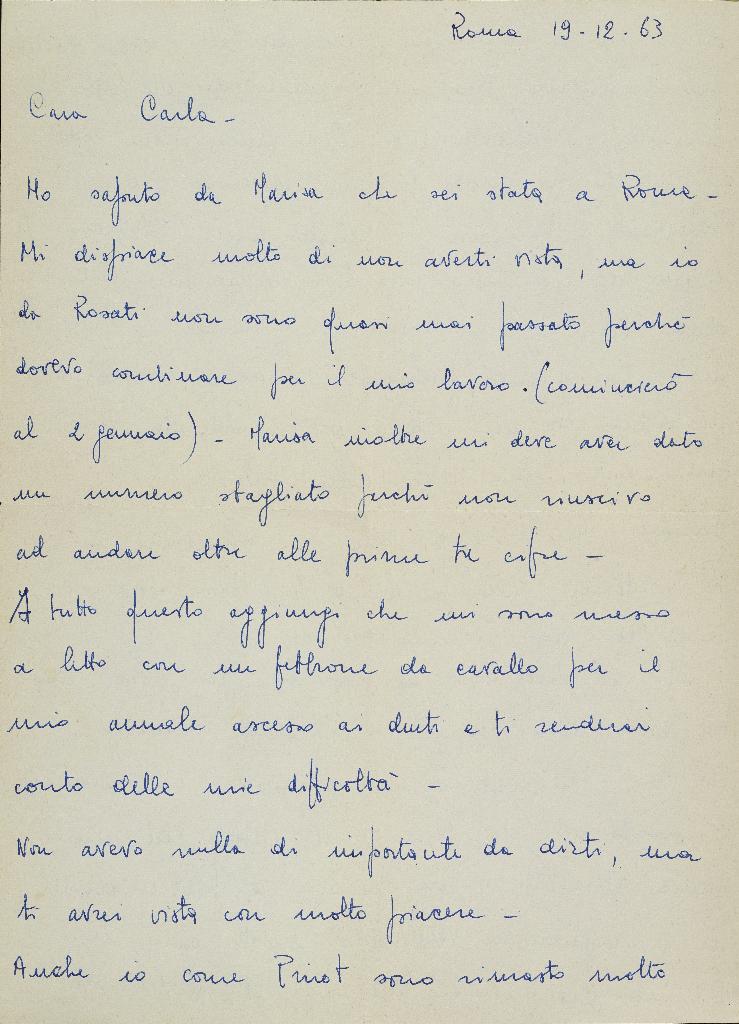 Roma 19-12-63
Cara Carla -
Ho saputo da Marisa che sei stata a Roma -
Mi dispiace molto di non averti vista, ma io
da Rosati non sono quasi mai passato perché
dovevo combinare per il mio lavoro. (comincierò
al 2 gennaio) - Marisa inoltre mi deve aver dato
un numero sbagliato perché non riuscivo
ad andare oltre alle prime tre cifre -
A tutto questo aggiungi che mi sono messo
a letto con un febbrone da cavallo per il
mio annuale ascesso ai denti e ti renderai
conto delle mie difficoltà -
Non avevo nulla di importante da dirti, ma
ti avrei vista con molto piacere -
Anche io come Pinot sono rimasto molto